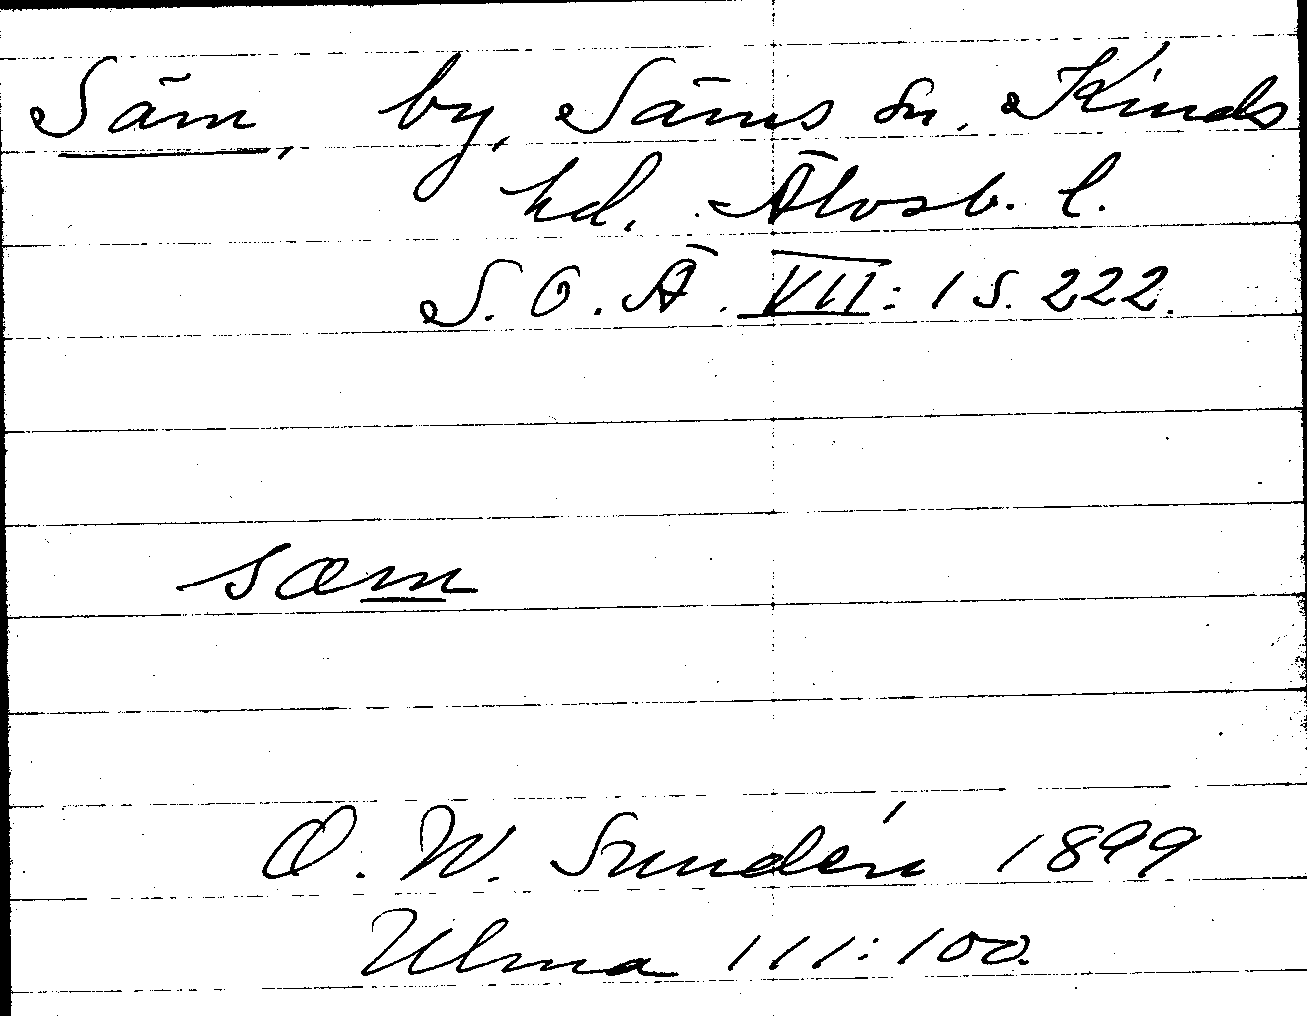 Säm, by, Säms sn, Kinds
hd. Älvsb. l.
S. O. Ä. VII: 1 S. 222.
sæm
O. W. Sundén 1899
Ulma 111:100.